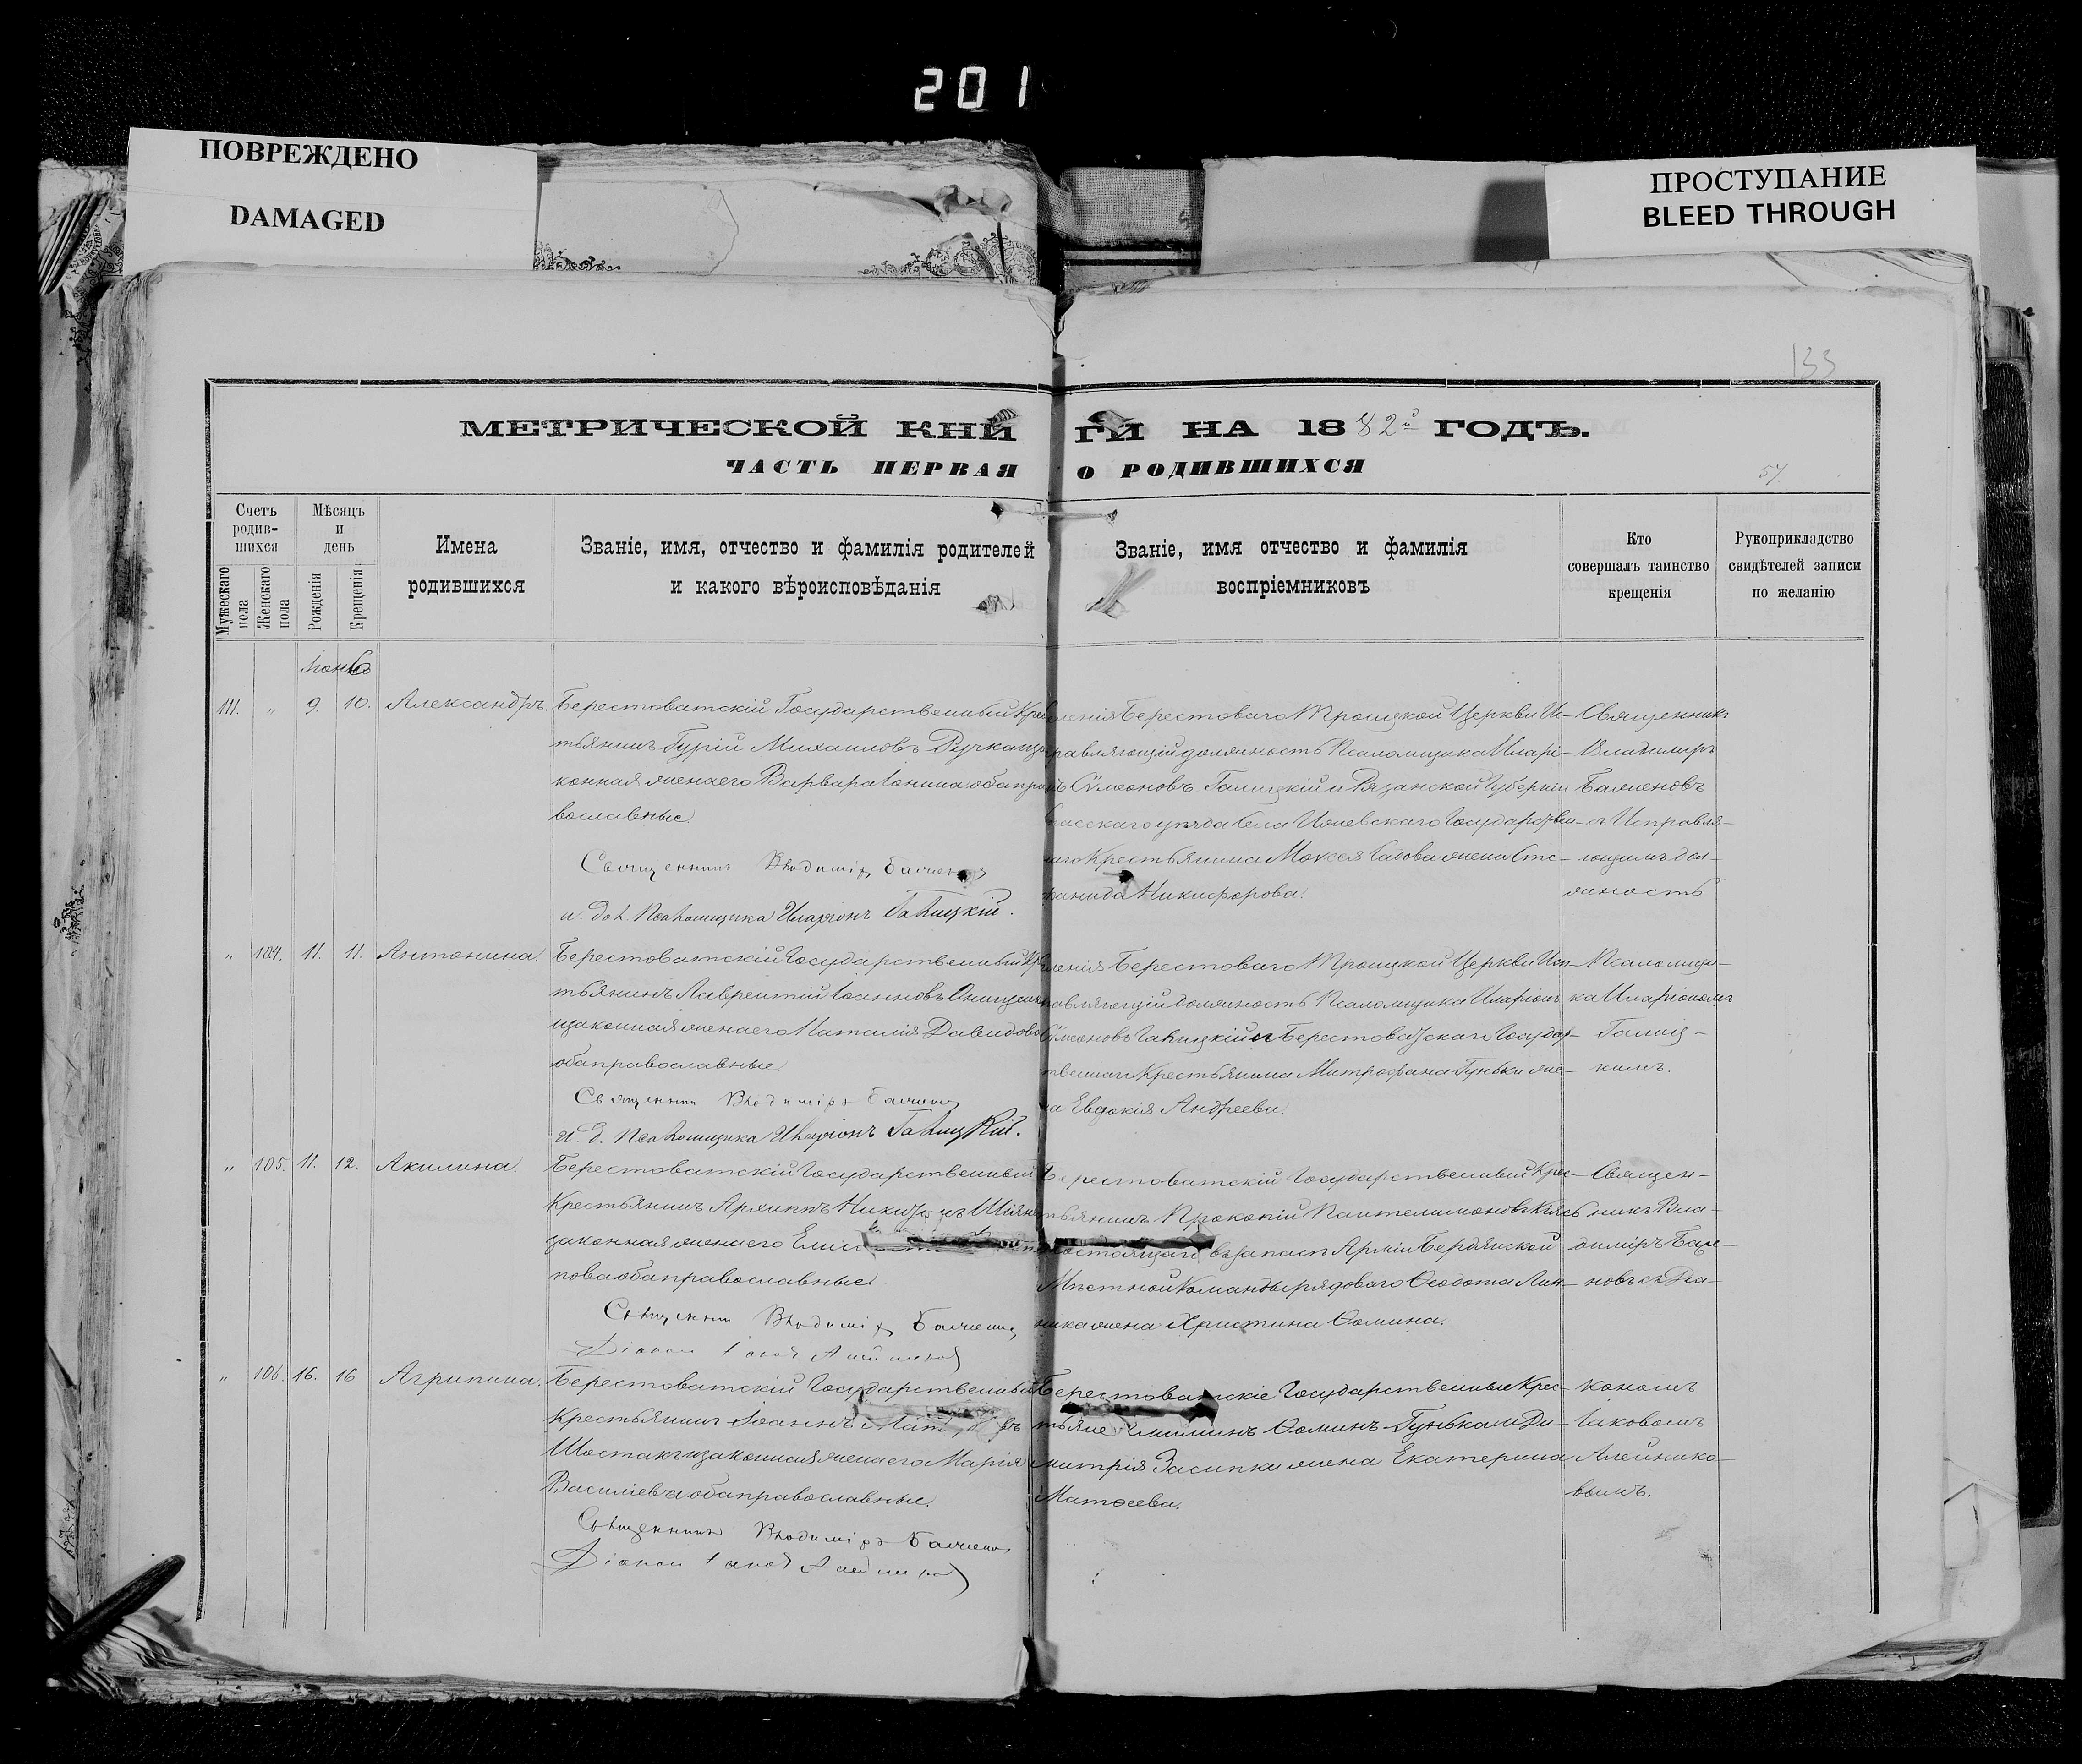 201
ПОВРЕЖДЕНО
DAMAGED
ПРОСТУПАНИЕ
BLEED THROUGH
133
МЕТРИЧЕСКОЙ КНИ
ГИ НА 1882й ГОДЪ.
ЧАСТЬ ПЕРВАЯ
О РОДИВШИХСЯ
57.
Счетъ
родив-
шихся
Мужескаго
пола
Женскаго
пола
Мѣсяцъ
и
день
Рожденія
Крещенія
Имена
родившихся
Званіе, имя, отчество и фамилія родителей
и какого вѣроисповѣданія
Званіе, имя отчество и фамилія
воспріемниковъ
Кто
совершалъ таинство
крещенія
Рукоприкладство
свидѣтелей записи
по желанію
111. „ 9. 10. Александръ.
Берестоватскій Государственный Крес
тьянинъ Гурій Михаиловъ Ручка иза
конная жена его Варвара Іонина оба пра
вославные.
Священникъ Владиміръ Баженовъ
и. дол. Псаломщика Иларіонъ Галицкій.
Берестоваго Троицкой Церкви Ис-
равляющій должность Псаломщика Иларі-
Сѵмеоновъ Галицкій и Рязанской Губерніи
уѣзда Села Ижевскаго Государствен-
наго Крестьянина Мокея Садова жена Сте-
фанида Никифорова.
Священникъ
Владимиръ
Баженовъ
съ Исправля-
ющимъ дол-
жность
„ 104. 11. 11. Антонина.
Берестоватскій Государственный Кре
тьянинъ Лаврентій Іоанновъ Онищенк
изаконная жена его Наталія Давидова
оба православные.
Священникъ Владиміръ Баженовъ
и. д. Псаломщика Иларіонъ Галицкій.
Берестоваго Троицкой Церкви Исп-
равляющій должность Псаломщика Иларіонъ
Сѵмеоновъ Галицкій и Берестоватскаго Государ-
твеннаго Крестьянина Митрофана Гуньки же-
на Евдокія Андреева.
Псаломщи-
ка Иларіономъ
Галиц-
кимъ.
„ 105. 11. 12. Акилина.
Берестоватскій Государственный
Крестьянинъ Архипъ
законная жена его
пова оба православные.
Священникъ Владиміръ Баженовъ
Діаконъ Іаковъ Алейниковъ
Берестоватскій Государственный Крес-
тьянинъ Прокопій Пантелимоновъ
состоящаго въ запасѣ Арміи Бердянской
Мѣстной Команды рядоваго Ѳеодота Лин-
ника жена Христина Ѳомина.
Священ-
никъ Вла-
диміръ Баже-
новъ съ Діа-
„ 106. 16. 16 Агрипина.
Берестоватскій Государственный
Крестьянинъ Іоаннъ
Шостакъ изаконная жена его Марія
Василіева оба православные.
Священникъ Владиміръ Баженовъ
Діаконъ Іаковъ Алейниковъ
Берестоватскіе Государственные Крес-
тьяне Ѳоминъ Гунька и Ди-
митрія Засипки жена Екатерина
Матѳеева.
кономъ
Іаковомъ
Алейнико-
вымъ.